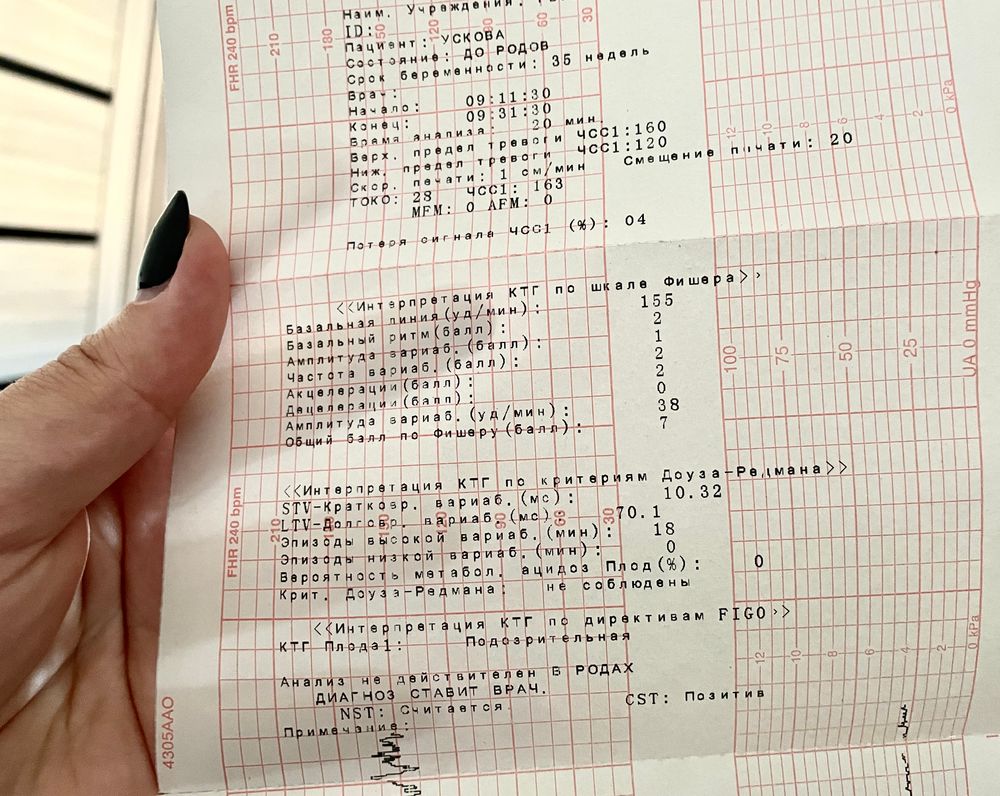 Наим. Учреждения:
ID:
Пациент: УСКОВА
Состояние: ДО РОДОВ
Срок беременности: 35 недель
Врач:
Начало: 09:11:30
Конец: 09:31:30
Время анализа: 20 мин.
Верх. предел тревоги ЧСС1:160
Ниж. предел тревоги ЧСС1:120
Скор. печати: 1 см/мин Смещение печати: 20
ТОКО: 28 ЧСС1: 163
MFM: 0 AFM: 0
Потеря сигнала ЧСС1 (%): 04
<<Интерпретация КТГ по шкале Фишера>>
Базальная линия(уд/мин): 155
Базальный ритм(балл): 2
Амплитуда вариаб.(балл): 1
Частота вариаб.(балл): 2
Акцелерации(балл): 2
Децелерации(балл): 0
Амплитуда вариаб.(уд/мин): 38
Общий балл по Фишеру(балл): 7
<<Интерпретация КТГ по критериям Доуза-Редмана>>
STV-Кратковр. вариаб.(мс): 10.32
LTV-Долговр. вариаб.(мс) 70.1
Эпизоды высокой вариаб.(мин): 18
Эпизоды низкой вариаб.(мин): 0
Вероятность метабол. ацидоз Плод(%): 0
Крит. Доуза-Редмана: не соблюдены
<<Интерпретация КТГ по директивам FIGO>>
КТГ Плода1: Подозрительная
Анализ не действителен В РОДАХ
ДИАГНОЗ СТАВИТ ВРАЧ.
NST: Считается CST: Позитив
Примечание:
FHR 240 bpm
210
180
150
120
60
30
12
10
8
6
4
2
0 kPa
100
75
50
25
UA 0 mmHg
FHR 240 bpm
210
180
150
120
90
60
30
12
10
8
6
4
2
0 kPa
4305AAO